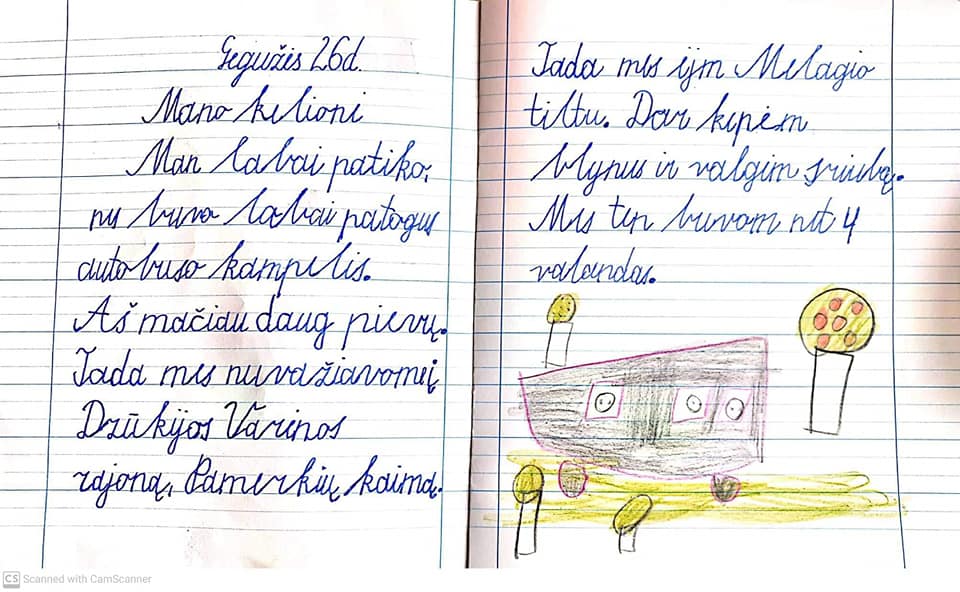 Gegužės 26d.
Mano kelionė
Man labai patiko,
nes buvo labai patogus
autobuso kampelis.
Aš mačiau daug pievų.
Tada mes nuvažiavome į
Dzūkijos Varėnos
rajoną, Pamerkių kaimą.
Tada mes ėjm Melagio
tiltu. Dar kepėm
blynus ir valgėm sriubą.
Mes ten buvom net 4
valandas.
CS Scanned with CamScanner